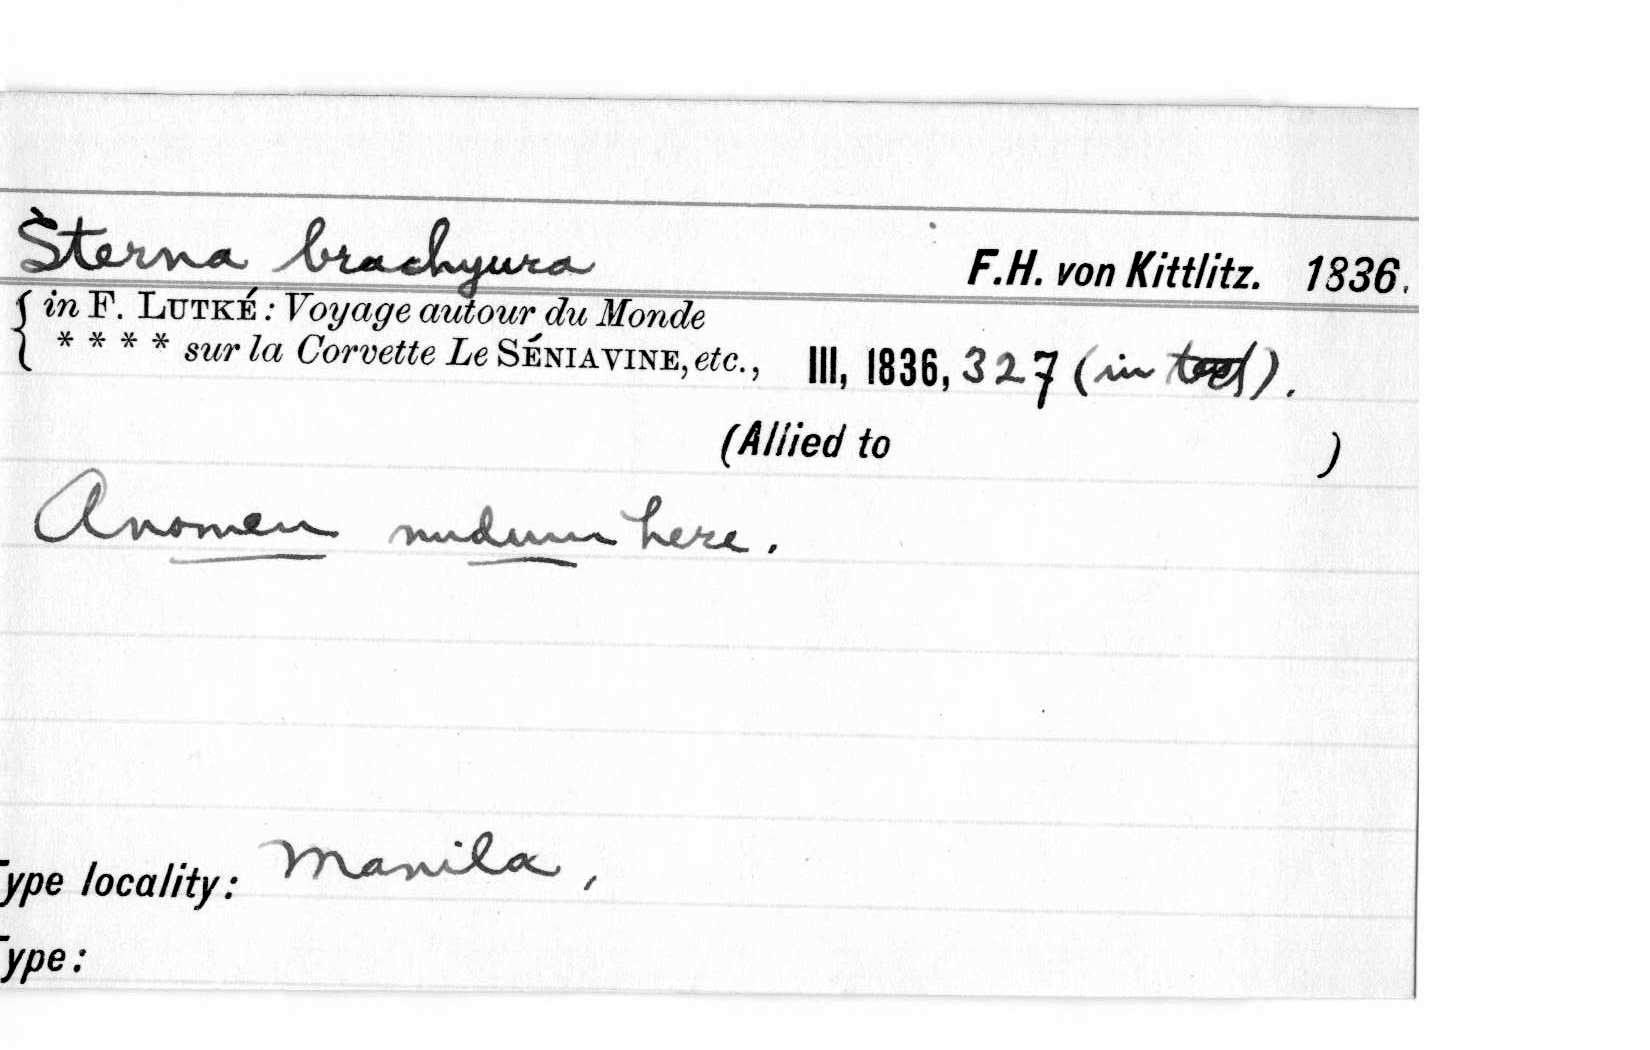 Sterna brachyura F.H. von Kittlitz. 1836.
in F. LUTKÉ: Voyage autour du Monde
* * * * sur la Corvette Le SÉNIAVINE, etc., III, 1836, 327 (in text).
(Allied to )
A nomen nudum here.
Type locality: Manila,
Type: